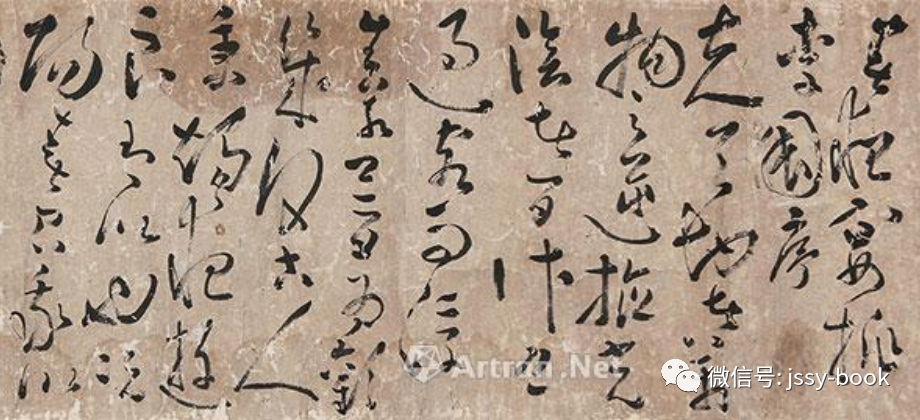 春夜宴桃
李園序
夫天地者萬
物之逆旅光
陰者百代之
過客而浮
生若夢為歡
幾何古人
秉燭夜遊
良有以也況
陽春召我以
Artron.Net
微信号: jssy-book